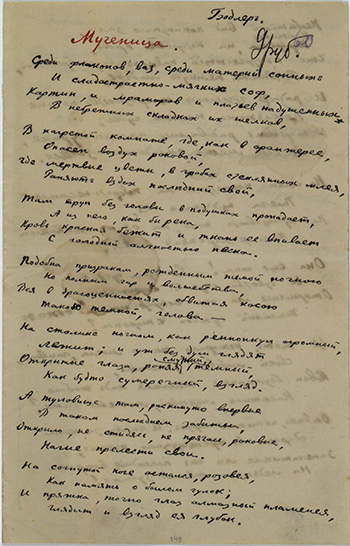 Бодлер.
Мученица.
Груб.
Среди флаконов, ваз, среди материй сонных
И сладострастно-мягких соф,
Картин и мраморов и платьев надушенных
В небрежных складках их шелков,
В нагретой комнате, где как в оранжерее,
Опасен воздух роковой,
Где мертвые цветы, в гробах стеклянных млея,
Роняют вздох последний свой,
Там труп без головы в подушках пропадает,
А из него, как бы река,
Кровь красная бежит и ткань ее впивает
С голодной алчностью песка.
Подобна призракам, рожденным тьмой ночною
Но полным чар и волшебства,
Вся в драгоценностях, обвитая косою
Такою темной, голова —
На столике ночном, как ренонкул огромный,
Лежит; и уж без дум глядят
Открытые глаза, роняя смутный, темный,
Как будто сумеречный, взгляд.
А туловище там, раскинуто впервые
В таком последнем забытьи,
Открыло, не стыдясь, не прячась, роковые,
Нагие прелести свои.
На согнутой ноге остался, розовея,
Как память о былом чулок;
И пряжка, точно глаз алмазный пламенея,
Глядит и взгляд ея глубок.